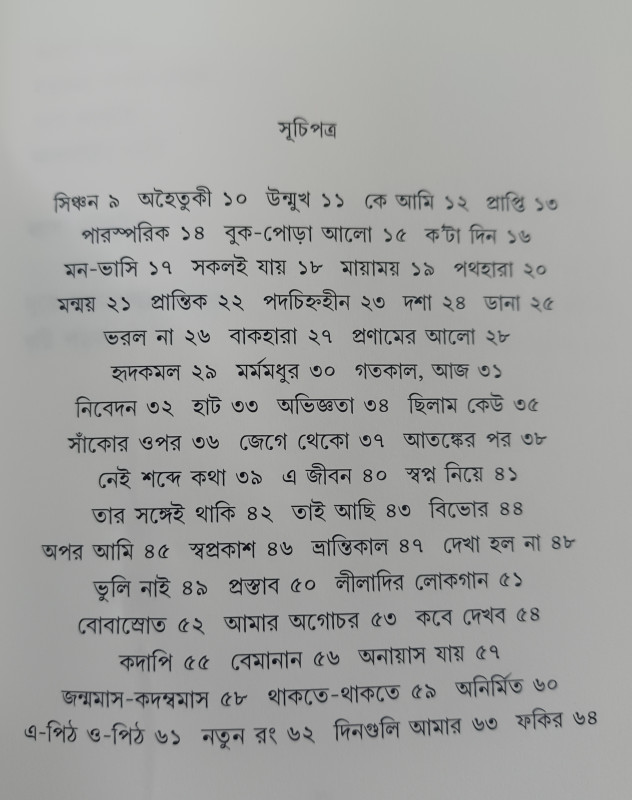 সূচিপত্র
সিঞ্চন ৯ অহৈতুকী ১০ উন্মুখ ১১ কে আমি ১২ প্রাপ্তি ১৩
পারস্পরিক ১৪ বুক-পোড়া আলো ১৫ ক'টা দিন ১৬
মন-ভাসি ১৭ সকলই যায় ১৮ মায়াময় ১৯ পথহারা ২০
মন্ময় ২১ প্রান্তিক ২২ পদচিহ্নহীন ২৩ দশা ২৪ ডানা ২৫
ভরল না ২৬ বাকহারা ২৭ প্রণামের আলো ২৮
হৃদকমল ২৯ মর্মমধুর ৩০ গতকাল, আজ ৩১
নিবেদন ৩২ হাট ৩৩ অভিজ্ঞতা ৩৪ ছিলাম কেউ ৩৫
সাঁকোর ওপর ৩৬ জেগে থেকো ৩৭ আতঙ্কের পর ৩৮
নেই শব্দে কথা ৩৯ এ জীবন ৪০ স্বপ্ন নিয়ে ৪১
তার সঙ্গেই থাকি ৪২ তাই আছি ৪৩ বিভোর ৪৪
অপর আমি ৪৫ স্বপ্রকাশ ৪৬ ভ্রান্তিকাল ৪৭ দেখা হল না ৪৮
ভুলি নাই ৪৯ প্রস্তাব ৫০ লীলাদির লোকগান ৫১
বোবাস্রোত ৫২ আমার অগোচর ৫৩ কবে দেখব ৫৪
কদাপি ৫৫ বেমানান ৫৬ অনায়াস যায় ৫৭
জন্মমাস-কদম্বমাস ৫৮ থাকতে-থাকতে ৫৯ অনির্মিত ৬০
এ-পিঠ ও-পিঠ ৬১ নতুন রং ৬২ দিনগুলি আমার ৬৩ ফকির ৬৪